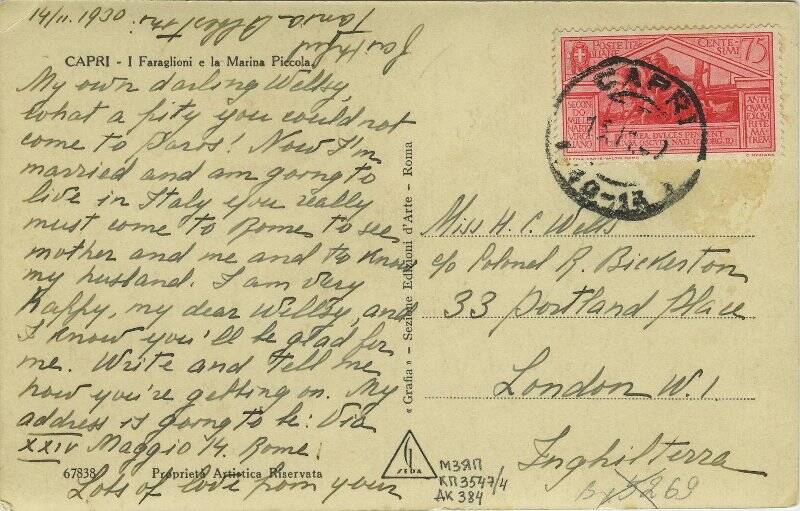 14/11 1930
Tania Albertini
faithful
CAPRI - I Faraglioni e la Marina Piccola
My own darling Wellsy,
what a pity you could not
come to Paris! Now I'm
married and am going to
live in Italy you really
must come to Rome to see
mother and me and to know
my husband. I am very
happy, my dear Wellsy, and
I know you'll be glad for
me. Write and tell me
how you're getting on. My
address is going to be: Via
XXIV Maggio 14. Rome.
67838 Proprietà Artistica Riservata
Lots of love from your
« Grafia » - Sezione Edizioni d'Arte - Roma
SEDA
POSTE ITALIANE CENTESIMI 75
SECONDO MILLENNARIO VIRGILIANO
ANTIQUAM EXQUIRITE MATREM
CAPRI
19-13
Miss H. C. Wells
c/o Colonel R. Bickerton
33 Portland Place
London W.1.
Inghilterra
МЗЯП
КП3547/4
АК 384
3269